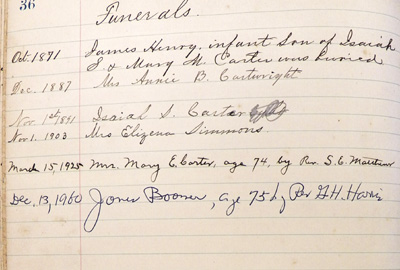 36
Funerals.
Oct. 1871 James Henry, infant Son of Isaiah
S & Mary M. Carter was buried
Dec. 1887 Mrs Annie B. Cartwright
Nov 1st 1891 Isaiah S. Carter
Nov 1. 1903 Mrs Elizena Simmons
March 15, 1925 Mrs. Mary E. Carter, age 74, by Rev. S. E.
Dec. 13, 1960 Jones Boomer, age 75 by Rev G. H. Harris